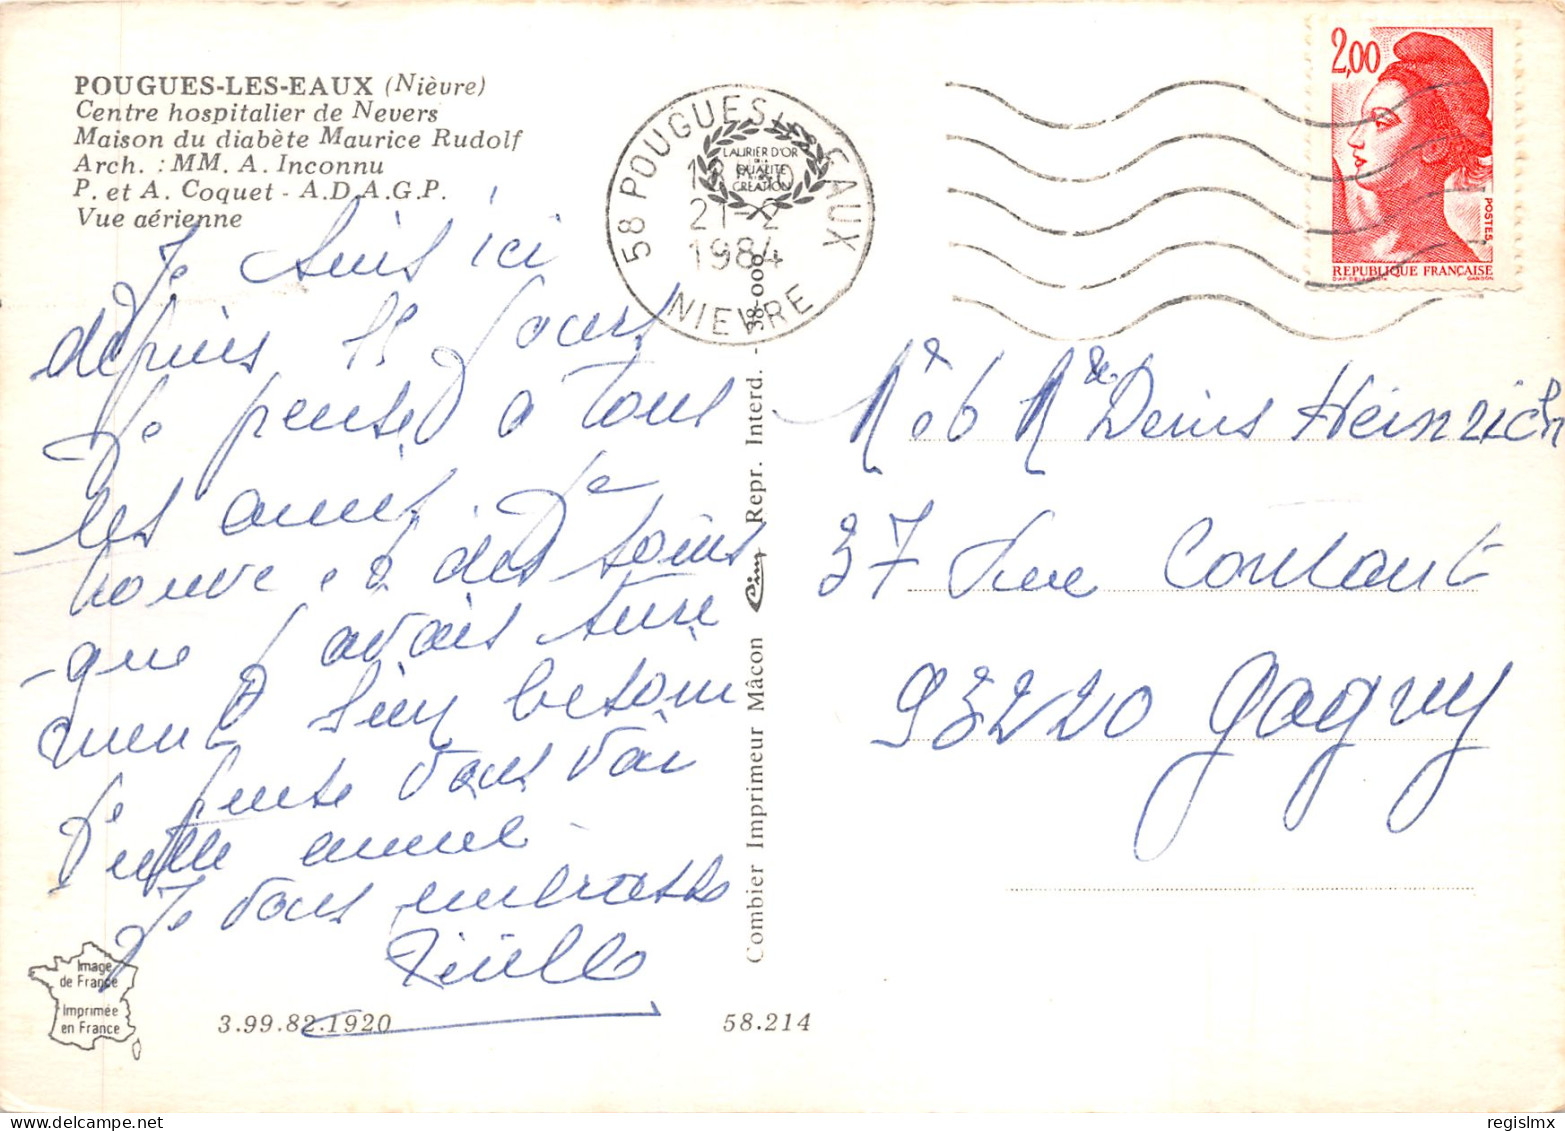 POUGUES-LES-EAUX (Nièvre)
Centre hospitalier de Nevers
Maison du diabète Maurice Rudolf
Arch. : MM. A. Inconnu
P. et A. Coquet - A.D.A.G.P.
Vue aérienne
Je suis ici
depuis 15 jours
Je pense à tous
les amis. Je
trouve ici des soins
que j'avais sure
ment bien besoin
Je pense vous voir
Je vous embrasse
58 POUGUES-LES-EAUX
21-2
1984
NIEVRE
LAURIER D'OR
DE LA
QUALITE
CREATION
2,00
POSTES
REPUBLIQUE FRANÇAISE
GANDON
Denis Heinrich
37 Rue Contant
93220 Gagny
Combier Imprimeur Mâcon Cim Repr. Interd. - 38-000
Image
de France
Imprimée
en France
3.99.82.1920
58.214
regislmx